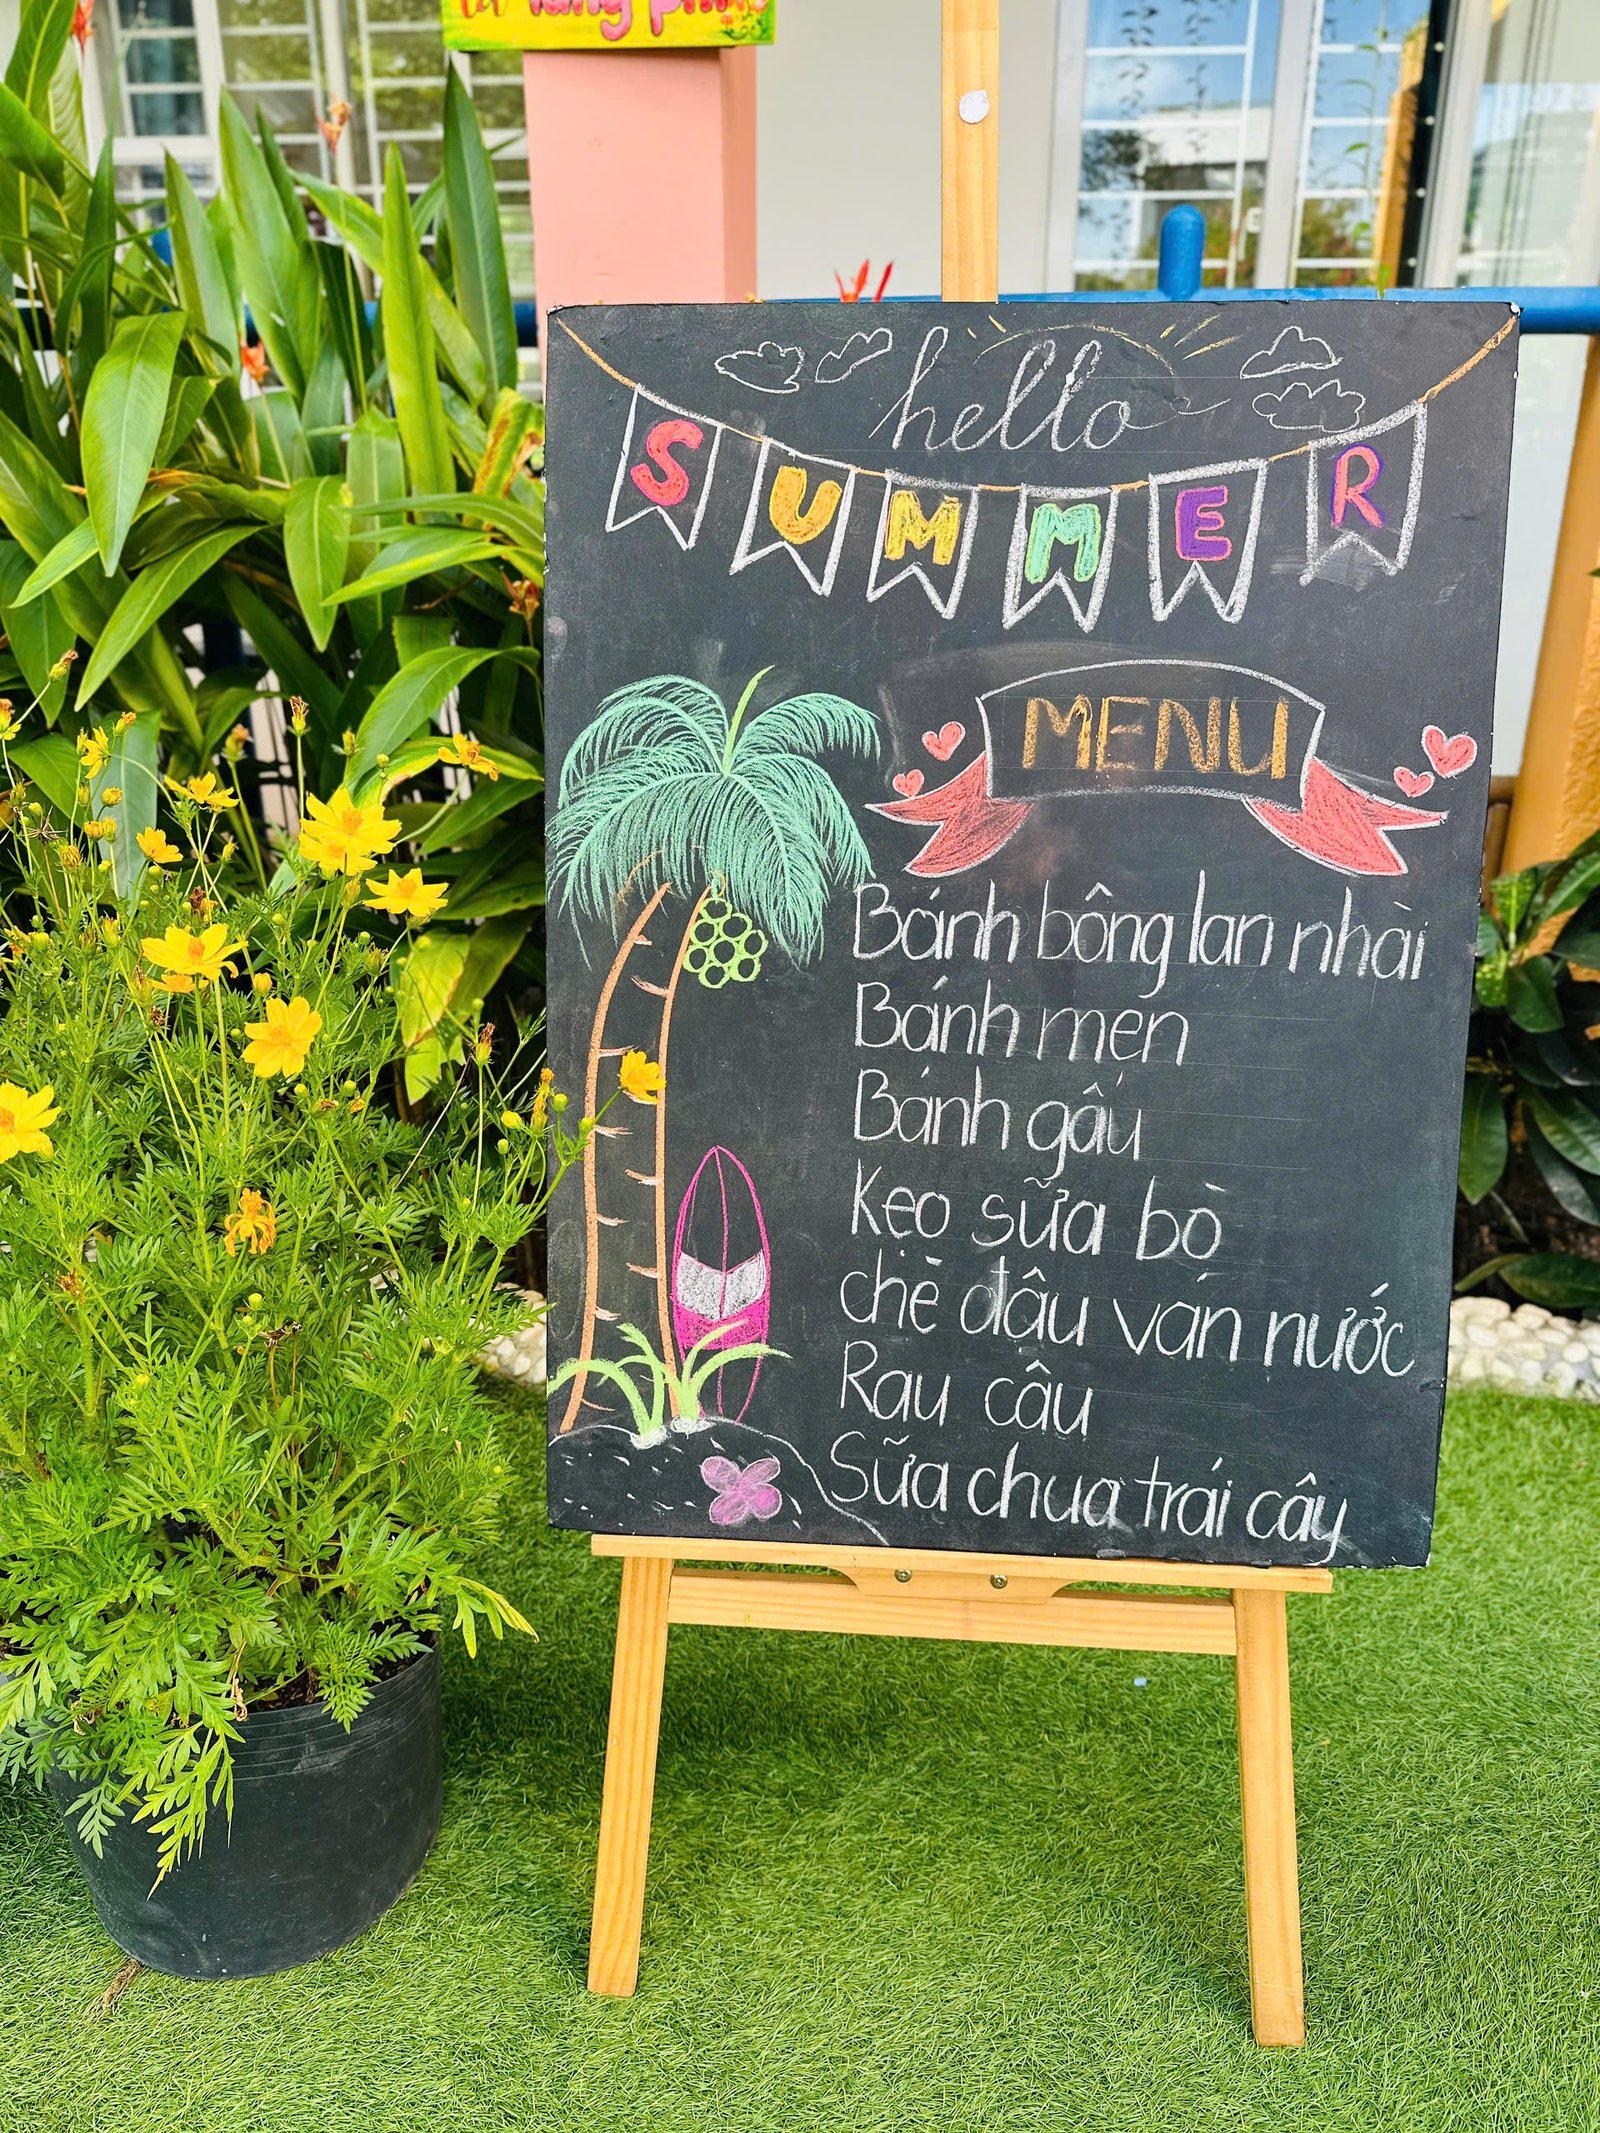 hello
SUMMER
MENU
Bánh bông lan nhài
Bánh men
Bánh gấu
Kẹo sữa bò
chè đậu ván nước
Rau câu
Sữa chua trái cây